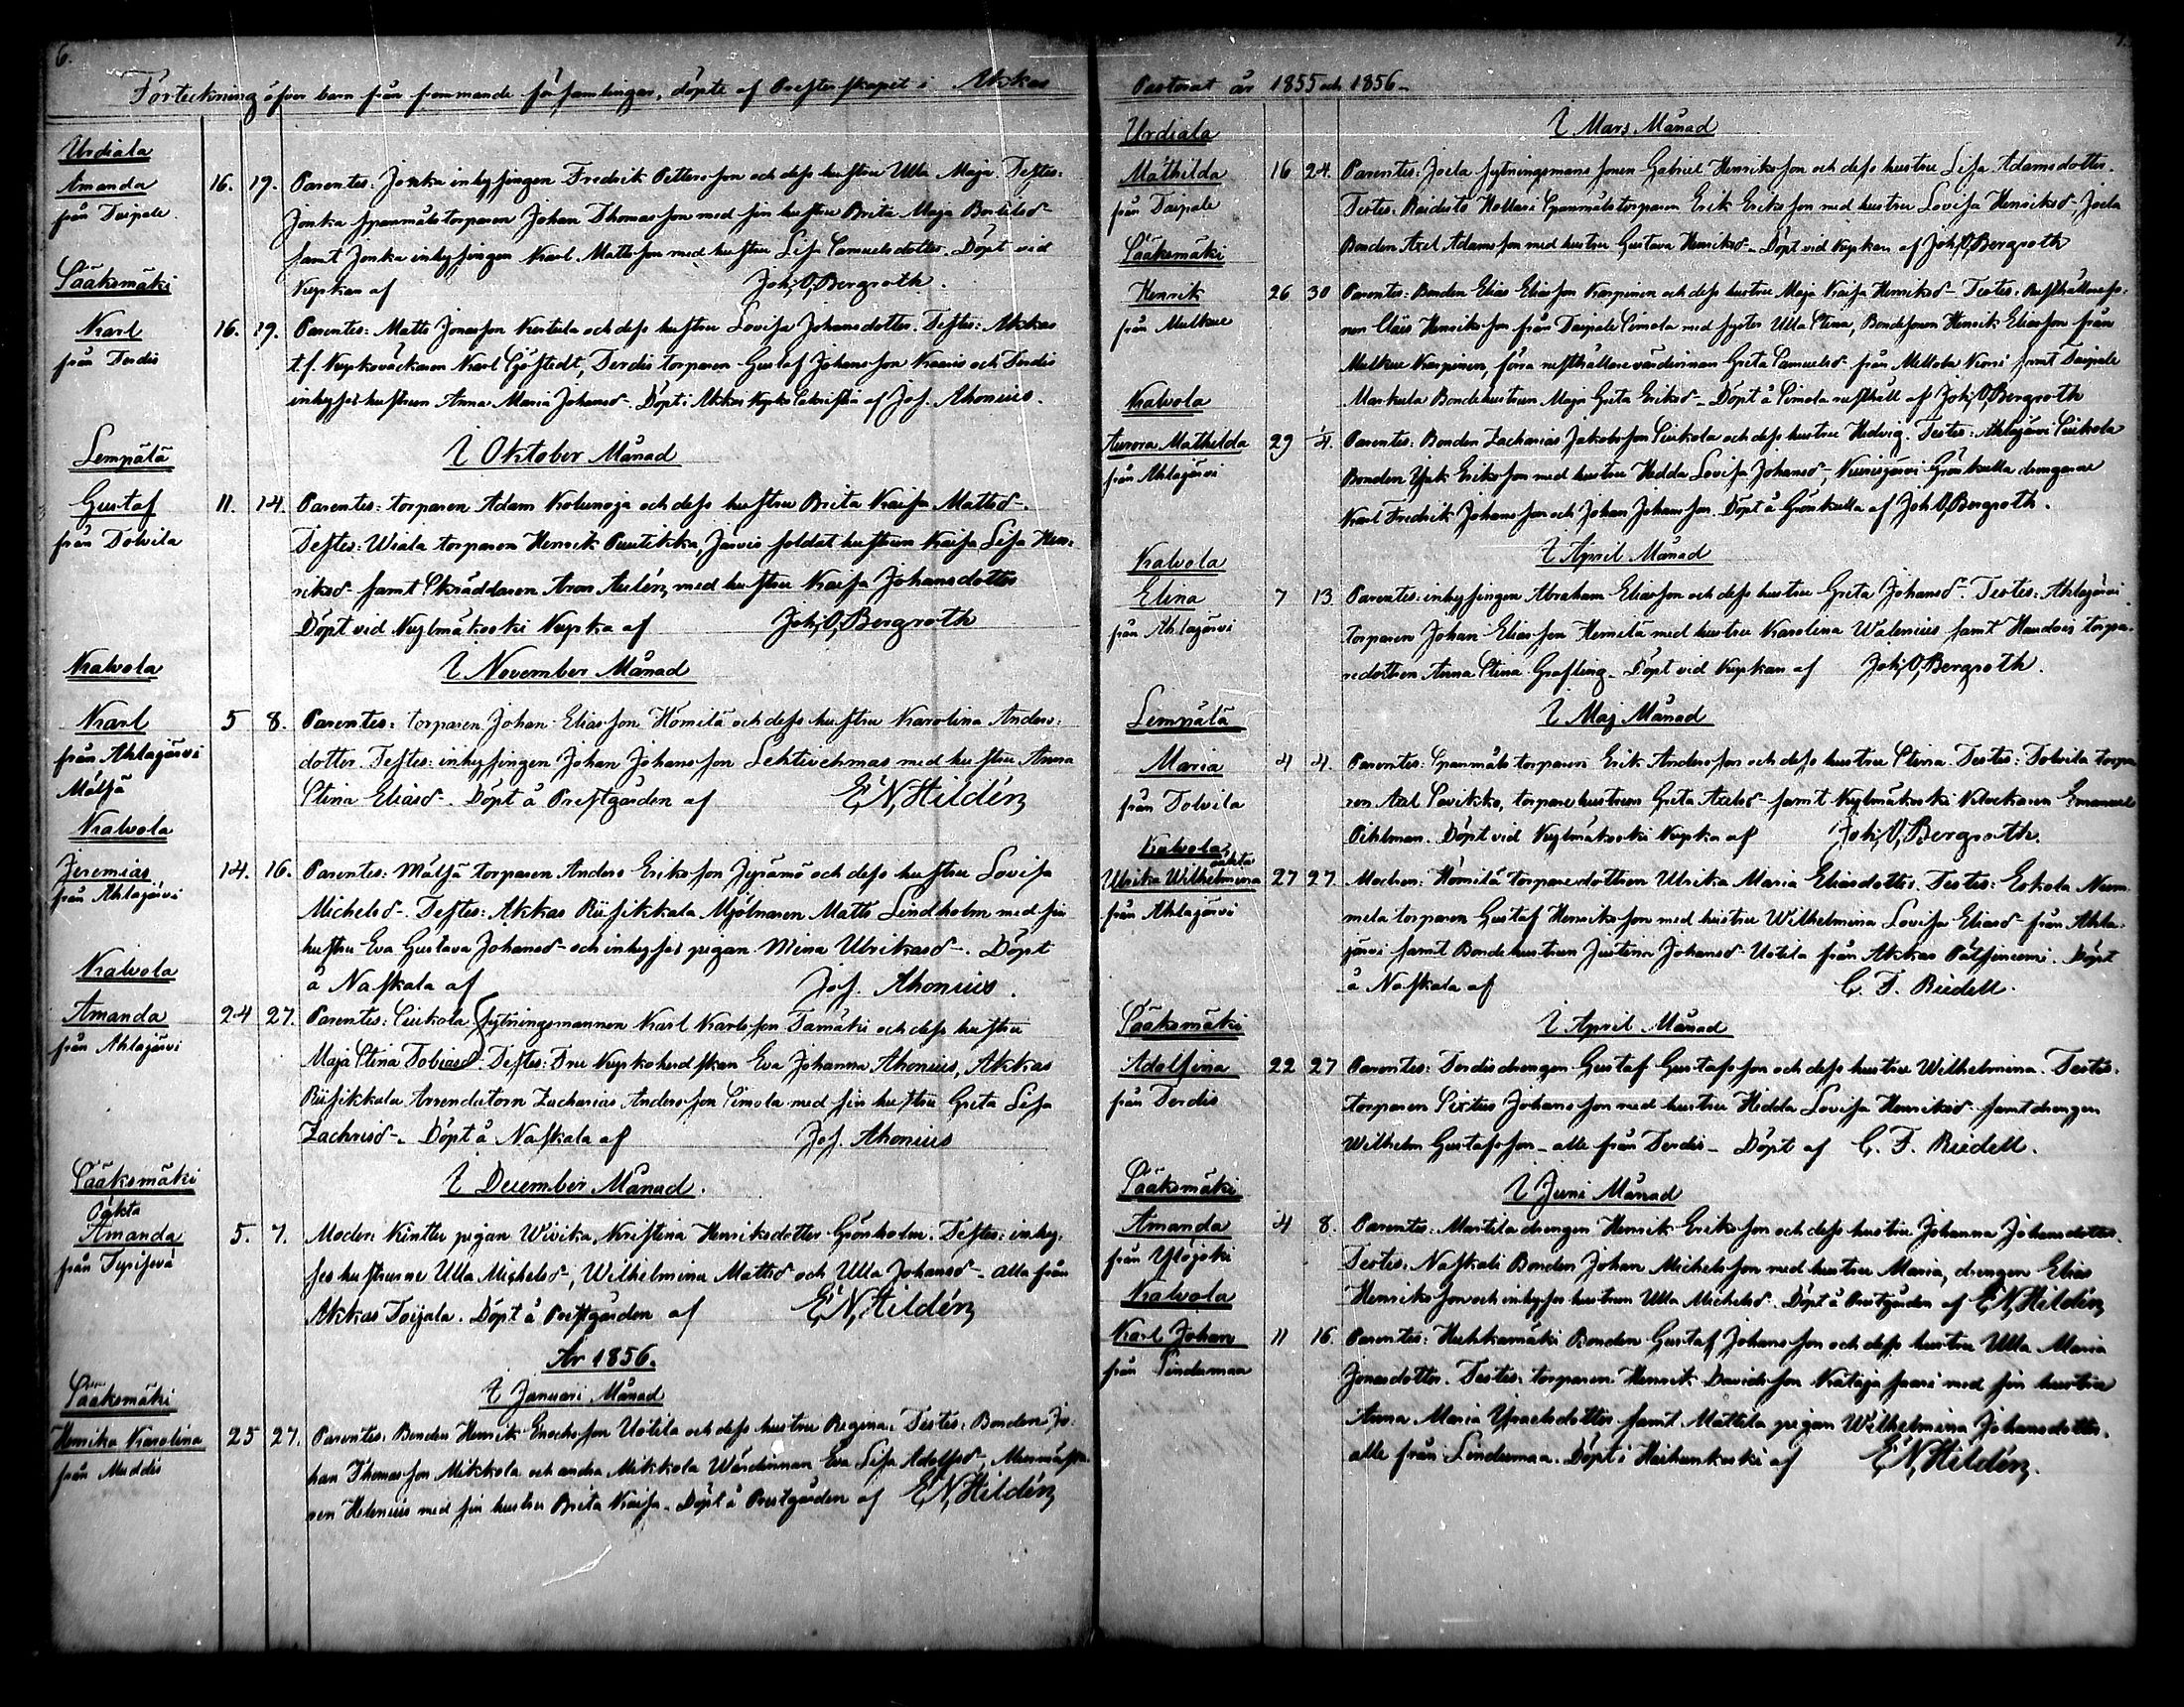 6.
Förteckning öfver barn från främmande församlingar, döpte af Presterskapet i Akkas
Urdiala
Amanda 16. 19. Parentes: Jonka inhysingen Fredrik Pettersson och dess hustru Ulla Maja. Testes:
från Taipale. Jonka spanmåls torparen Johan Thomasson med sin hustru Brita Maja Bertilsd-
samt Jonka inhysingen Karl Mattsson med hustru Lisa Samuelsdotter. Döpt vid
Sääksmäki Kyrkan af Joh, O, Bergroth.
Karl 16. 19. Parentes: Matts Jonasson Kurtula och dess hustru Lovisa Johansdotter. Testes: Akkas
från Terdis t.f. Kyrkoväckaren Karl Sjöstedt, Terdis torparen Gustaf Johansson Knaris och Terdis
inhyses hustrun Anna Maria Johansd-. Döpt i Akkas Kyrko Sakristia af Jos. Ahonius.
Lempälä I Oktober Månad
Gustaf 11. 14. Parentes: torparen Adam Kolunoja och dess hustru Brita Kaisa Mattsd-.
från Tolvila Testes: Wiala torparen Henrik Puntikka, Jarvis soldat hustrun Kaisa Lisa Hen-
riksd- samt Skräddaren Aron Aulén med hustru Kaisa Johansdotter
Döpt vid Kylmäkoski Kyrka af Joh, O, Bergroth
Kalvola I November Månad
Karl 5 8. Parentes: torparen Johan Eliasson Hömilä och dess hustru Karolina Anders-
från Ahlajärvi dotter. Testes: inhysingen Johan Johansson Lehtivehmas med hustru Anna
Mälsä Stina Eliasd-. Döpt å Prestgården af E, N, Hildén
Kalvola
Jeremias 14. 16. Parentes: Mälsä torparen Anders Eriksson Jyrämö och dess hustru Lovisa
från Ahlajärvi Michelsd-. Testes: Akkas Riisikkala Mjölnaren Matts Lindholm med sin
hustru Eva Gustava Johansd- och inhyses pigan Mina Ulrikasd-. Döpt
Kalvola å Naskala af Jos. Ahonius.
Amanda 24 27. Parentes: Siukola sytningsmannen Karl Karlsson Tamäki och dess hustru
från Ahlajärvi Maja Stina Tobiasd-. Testes: Fru Kyrkoherdskan Eva Johanna Ahonius, Akkas
Riisikkala Arrendatorn Zacharias Andersson Simola med sin hustru Greta Lisa
Zachrisd-. Döpt å Naskala af Jos. Ahonius
Sääksmäki I December Månad.
Oäkta
Amanda 5. 7. Modern: Kinttu pigan Wivika Kristina Henriksdotter Grönholm. Testes: inhy-
från Tyrisevä ses hustrurne Ulla Michelsd-, Wilhelmina Mattsd och Ulla Johansd-. alla från
Akkas Toijala. Döpt å Prestgården af E, N, Hildén
År 1856.
Sääksmäki I Januari Månad
Henrika Karolina 25 27. Parentes: Bonden Henrik Enochsson Uotila och dess hustru Regina. Testes: Bonden Jo-
från Muddis han Thomasson Mikkola och andra Mikkola Wärdinnan Eva Lisa Adolfsd-, Murmästa-
ren Helenius med sin hustru Brita Kaisa. Döpt å Prestgården af E, N, Hildén
7.
Pastorat år 1855 och 1856.
Urdiala I Mars Månad
Mathilda 16 24. Parentes: Joela sytningsmans sonen Gabriel Henriksson och dess hustru Lisa Adamsdotter.
från Taipale Testes: Raidisto Hollari Spanmåls torparen Erik Eriksson med hustru Lovisa Henriksd- Joela
Sääksmäki Bonden Axel Adamsson med hustru Gustava Henriksd-. Döpt vid Kyrkan af Joh, O, Bergroth
Henrik 26 30 Parentes: Bonden Elias Eliasson Karpinen och dess hustru Maja Kaisa Henriksd- Testes: Rusthållares-
från Mulkue nen Claës Henriksson från Taipale Simola med syster Ulla Stina, Bondesonen Henrik Eliasson från
Mulkue Karpinen, förra rusthållarevärdinnan Greta Samuelsd- från Mellola Korsi samt Taipale
Kalvola Markula Bondehustrun Maja Greta Eriksd-. Döpt å Simola rusthåll af Joh, O, Bergroth
Aurora Mathilda 29 1/4. Parentes: Bonden Zacharias Jakobsson Siukola och dess hustru Hedvig. Testes: Ahlajärvi Siukola
från Ahlajärvi Bonden Isak Eriksson med hustru Hedda Lovisa Johansd-, Kurisjärvi Grönkulla drengarne
Karl Fredrik Johansson och Johan Johansson. Döpt å Grönkulla af Joh O, Bergroth.
Kalvola I April Månad
Elina 7 13 Parentes: inhysingen Abraham Eliasson och dess hustru Greta Johansd-. Testes: Ahlajärvi
från Ahlajärvi torparen Johan Eliasson Hemilä med hustru Karolina Walenius samt Haudois torpa-
redottren Anna Stina Grafling. Döpt vid Kyrkan af Joh, O, Bergroth.
Lempälä I Maj Månad
Maria 4 4. Parentes: Spanmåls torparen Erik Andersson och dess hustru Stina. Testes: Tolvila torpa
från Tolvila ren Axel Savikko, torpare hustrun Greta Axelsd- samt Kylmäkoski Klockaren Emanuel
Pihlman. Döpt vid Kylmäkoski Kyrka af Joh, O, Bergroth.
Kalvola
oäkta
Ulrika Wilhelmina 27 27 Modren: Hömilä torparedottren Ulrika Maria Eliasdotter. Testes: Eskola Num-
från Ahlajärvi mela torparen Gustaf Henriksson med hustru Wilhelmina Lovisa Eliasd- från Ahla-
järvi samt Bonde hustrun Justina Johansd- Uotila från Akkas Pätsiniemi. Döpt
å Naskala af C. F. Riedell.
Sääksmäki I April Månad
Adolfina 22 27 Parentes: Terdis drengen Gustaf Gustafsson och dess hustru Wilhelmina. Testes:
från Terdis torparen Sixtus Johansson med hustru Hedda Lovisa Henriksd- samt drengen
Wilhelm Gustafsson. alle från Terdis. Döpt af C. F. Riedell.
Sääksmäki I Juni Månad
Amanda 4 8. Parentes: Martila drengen Henrik Eriksson och dess hustru Johanna Johansdotter.
från Ylöjoki Testes: Naskali Bonden Johan Michelsson med hustru Maria, drengen Elias
Kalvola Henriksson och inhyses hustrun Ulla Michelsd-. Döpt å Prestgården af E, N, Hildén
Karl Johan 11 16. Parentes: Huhkamäki Bonden Gustaf Johansson och dess hustru Ulla Maria
från Lindumaa Jonasdotter. Testes: torparen Henrik Davidsson Katajasaari med sin hustru
Anna Maria Ysraelsdotter samt Mattila pigan Wilhelmina Johansdotter,
alle från Lindumaa. Döpt i Haihunkoski af E, N, Hildén.